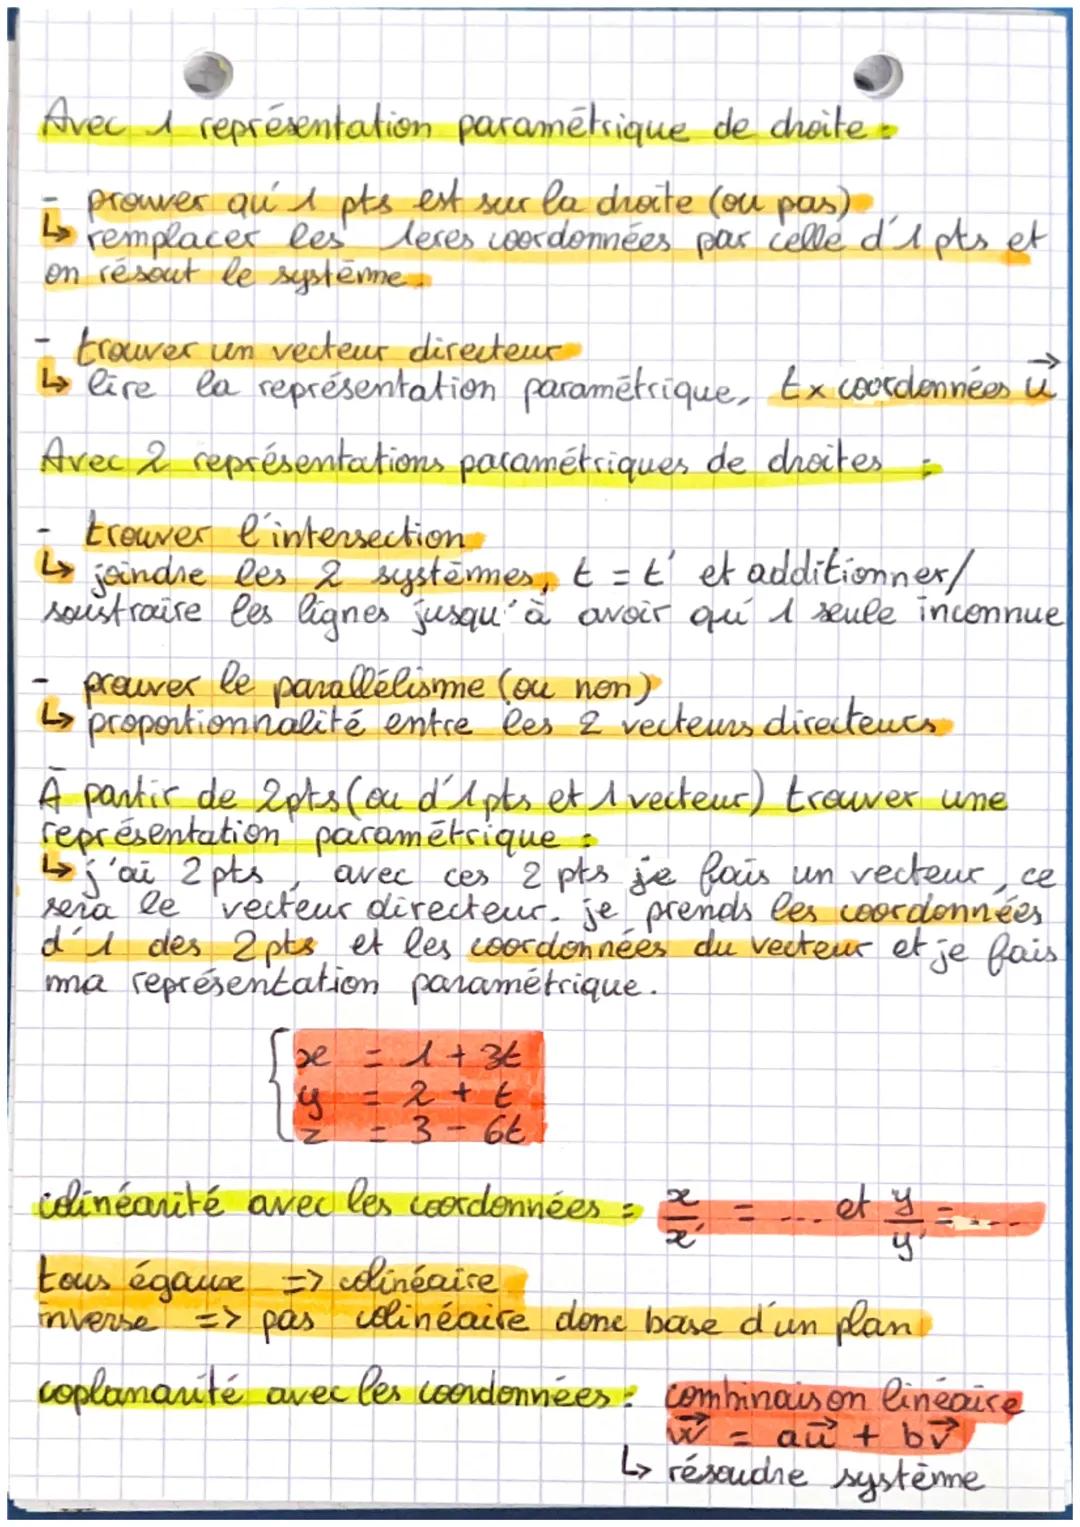 Avec 1 représentation paramétrique de droite :
- prouver qu'1 pts est sur la droite (ou pas)
↳ remplacer les 1eres coordonnées par celle d'1 pts et
on résout le système.
- trouver un vecteur directeur
↳ lire la représentation paramétrique, t × coordonnées u⃗
Avec 2 représentations paramétriques de droites :
- trouver l'intersection
↳ joindre les 2 systèmes, t = t' et additionner/
soustraire les lignes jusqu'à avoir qu'1 seule inconnue
- prouver le parallélisme (ou non)
↳ proportionnalité entre les 2 vecteurs directeurs
À partir de 2pts (ou d'1pts et 1 vecteur) trouver une
représentation paramétrique :
↳ j'ai 2 pts, avec ces 2 pts je fais un vecteur, ce
sera le vecteur directeur. je prends les coordonnées
d'1 des 2pts et les coordonnées du vecteur et je fais
ma représentation paramétrique.
x = 1 + 3t
y = 2 + t
z = 3 - 6t
colinéarité avec les coordonnées : x/x' = ... et y/y' = ...
tous égaux => colinéaire
inverse => pas colinéaire donc base d'un plan
coplanarité avec les coordonnées : combinaison linéaire
w⃗ = au⃗ + bv⃗
↳ résoudre système